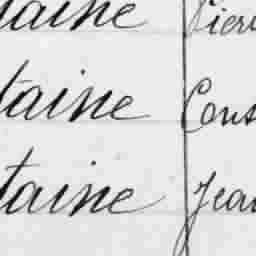 taine Pier
taine Cons
taine Jean